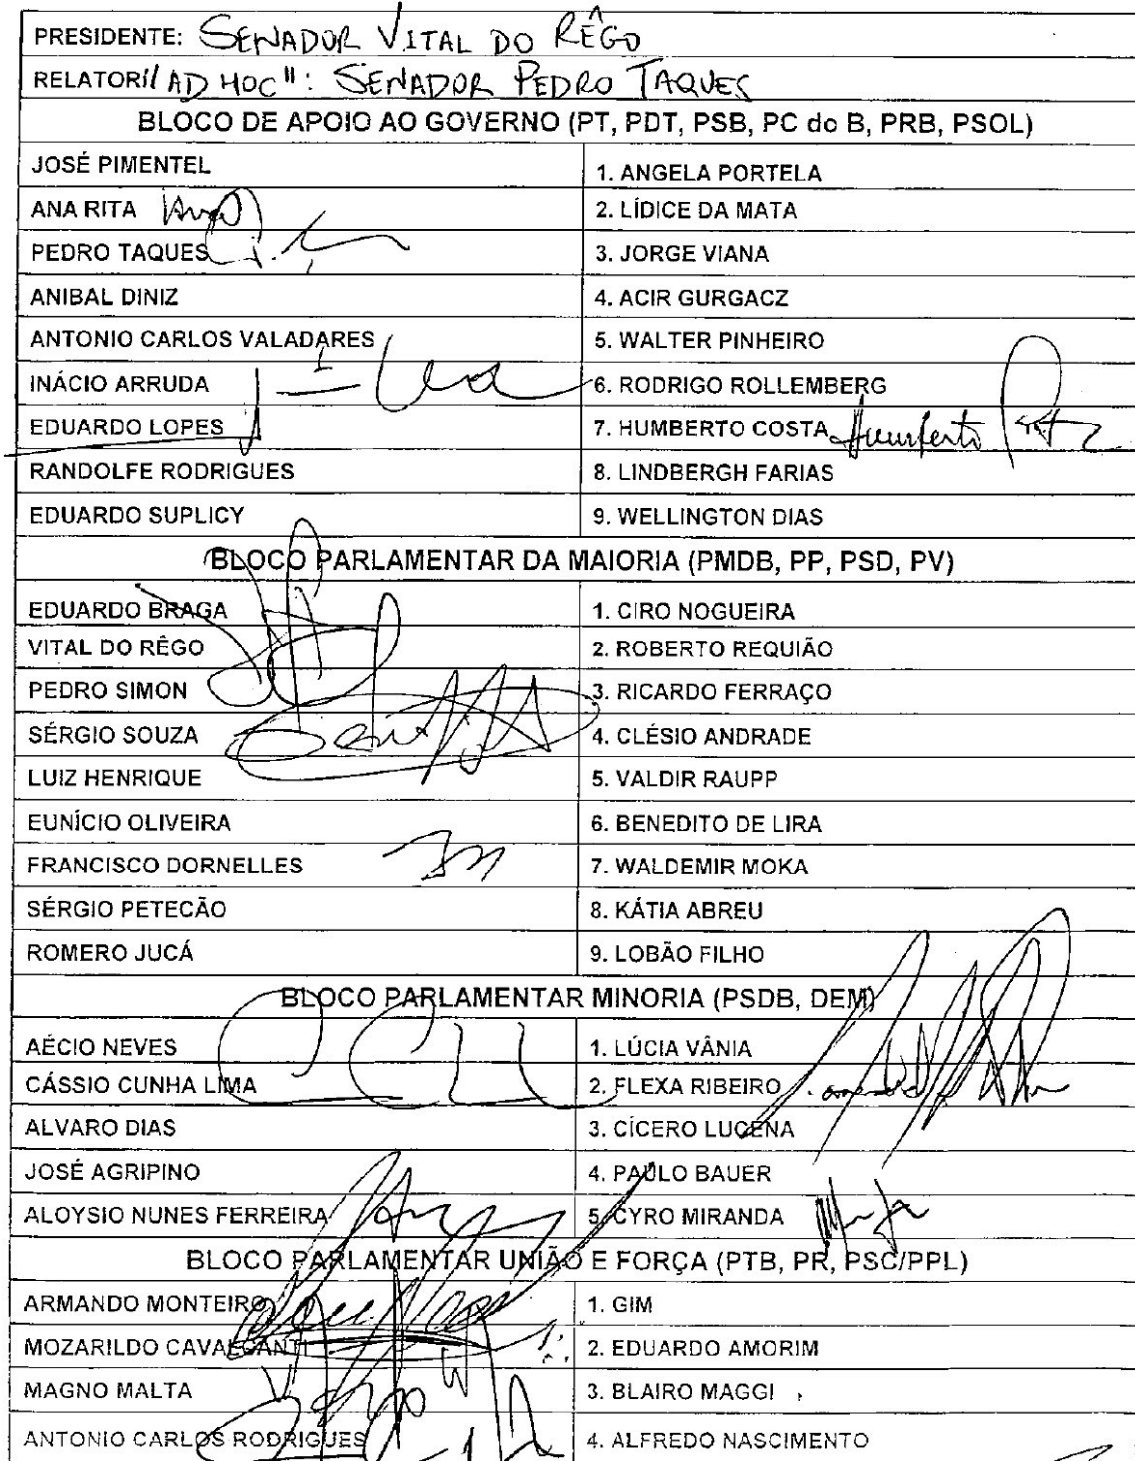 PRESIDENTE: SENADOR VITAL DO RÊGO
RELATOR "AD HOC": SENADOR PEDRO TAQUES
BLOCO DE APOIO AO GOVERNO (PT, PDT, PSB, PC do B, PRB, PSOL)
JOSÉ PIMENTEL 1. ANGELA PORTELA
ANA RITA 2. LÍDICE DA MATA
PEDRO TAQUES 3. JORGE VIANA
ANIBAL DINIZ 4. ACIR GURGACZ
ANTONIO CARLOS VALADARES 5. WALTER PINHEIRO
INÁCIO ARRUDA 6. RODRIGO ROLLEMBERG
EDUARDO LOPES 7. HUMBERTO COSTA Humberto Costa
RANDOLFE RODRIGUES 8. LINDBERGH FARIAS
EDUARDO SUPLICY 9. WELLINGTON DIAS
BLOCO PARLAMENTAR DA MAIORIA (PMDB, PP, PSD, PV)
EDUARDO BRAGA 1. CIRO NOGUEIRA
VITAL DO RÊGO 2. ROBERTO REQUIÃO
PEDRO SIMON 3. RICARDO FERRAÇO
SÉRGIO SOUZA 4. CLÉSIO ANDRADE
LUIZ HENRIQUE 5. VALDIR RAUPP
EUNÍCIO OLIVEIRA 6. BENEDITO DE LIRA
FRANCISCO DORNELLES 7. WALDEMIR MOKA
SÉRGIO PETECÃO 8. KÁTIA ABREU
ROMERO JUCÁ 9. LOBÃO FILHO
BLOCO PARLAMENTAR MINORIA (PSDB, DEM)
AÉCIO NEVES 1. LÚCIA VÂNIA
CÁSSIO CUNHA LIMA 2. FLEXA RIBEIRO
ALVARO DIAS 3. CÍCERO LUCENA
JOSÉ AGRIPINO 4. PAULO BAUER
ALOYSIO NUNES FERREIRA 5. CYRO MIRANDA
BLOCO PARLAMENTAR UNIÃO E FORÇA (PTB, PR, PSC/PPL)
ARMANDO MONTEIRO 1. GIM
MOZARILDO CAVALCANTI 2. EDUARDO AMORIM
MAGNO MALTA 3. BLAIRO MAGGI
ANTONIO CARLOS RODRIGUES 4. ALFREDO NASCIMENTO